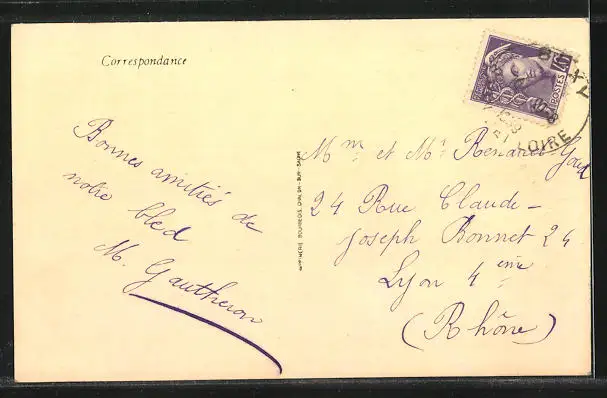 Correspondance
Bonnes amitiés de
notre bled
M. Gautheron
IMPRIMERIE BOURGEOIS, CHALON-SUR-SAONE
POSTES
ET LOIRE
Mme et Mr
24 Rue Claude-
Joseph Bonnet 24
Lyon 4eme
(Rhône)